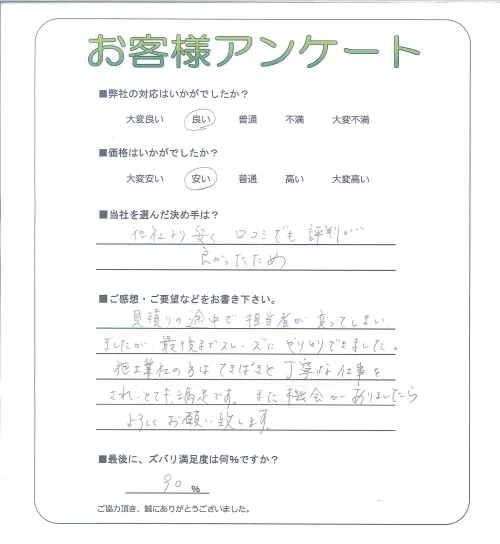 お客様アンケート
■弊社の対応はいかがでしたか？
大変良い 良い 普通 不満 大変不満
■価格はいかがでしたか？
大変安い 安い 普通 高い 大変高い
■当社を選んだ決め手は？
他社より安く 口コミでも評判が
良かったため
■ご感想・ご要望などをお書き下さい。
見積りの途中で担当者が変ってしまい
ましたが、最後までスムーズにやりとりできました。
施工業社の方はてきぱきと丁寧な仕事を
され、とても満足です。また、機会がありましたら
よろしくお願い致します。
■最後に、ズバリ満足度は何%ですか？
90 %
ご協力頂き、誠にありがとうございました。